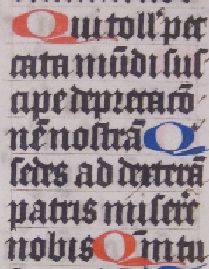 Qui toll' pec
cata mūdi sus
cipe deprecacō
nē nostrā Q
sedes ad dexterā
patris misere
nobis Qm tu